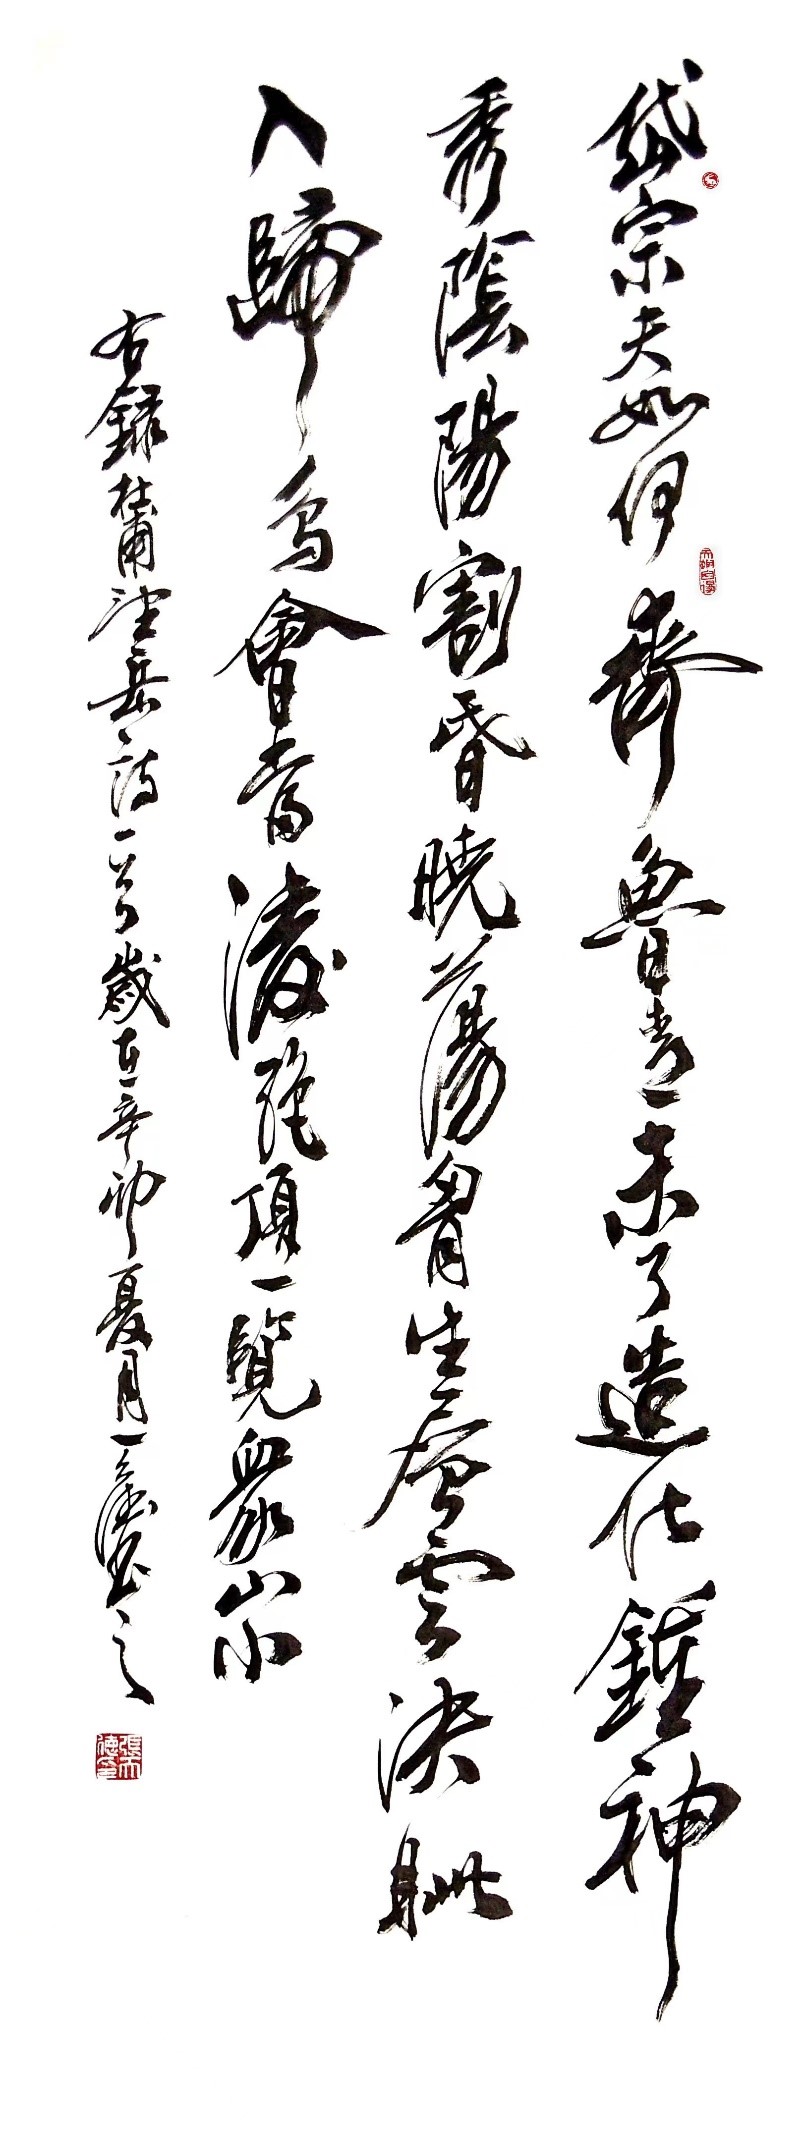 岱宗夫如何齊魯青未了造化鍾神
秀陰陽割昏曉蕩胷生層雲決眦
入歸鳥會當淩絕頂一覽衆山小
右錄杜甫望岳詩一首歲在辛卯夏月